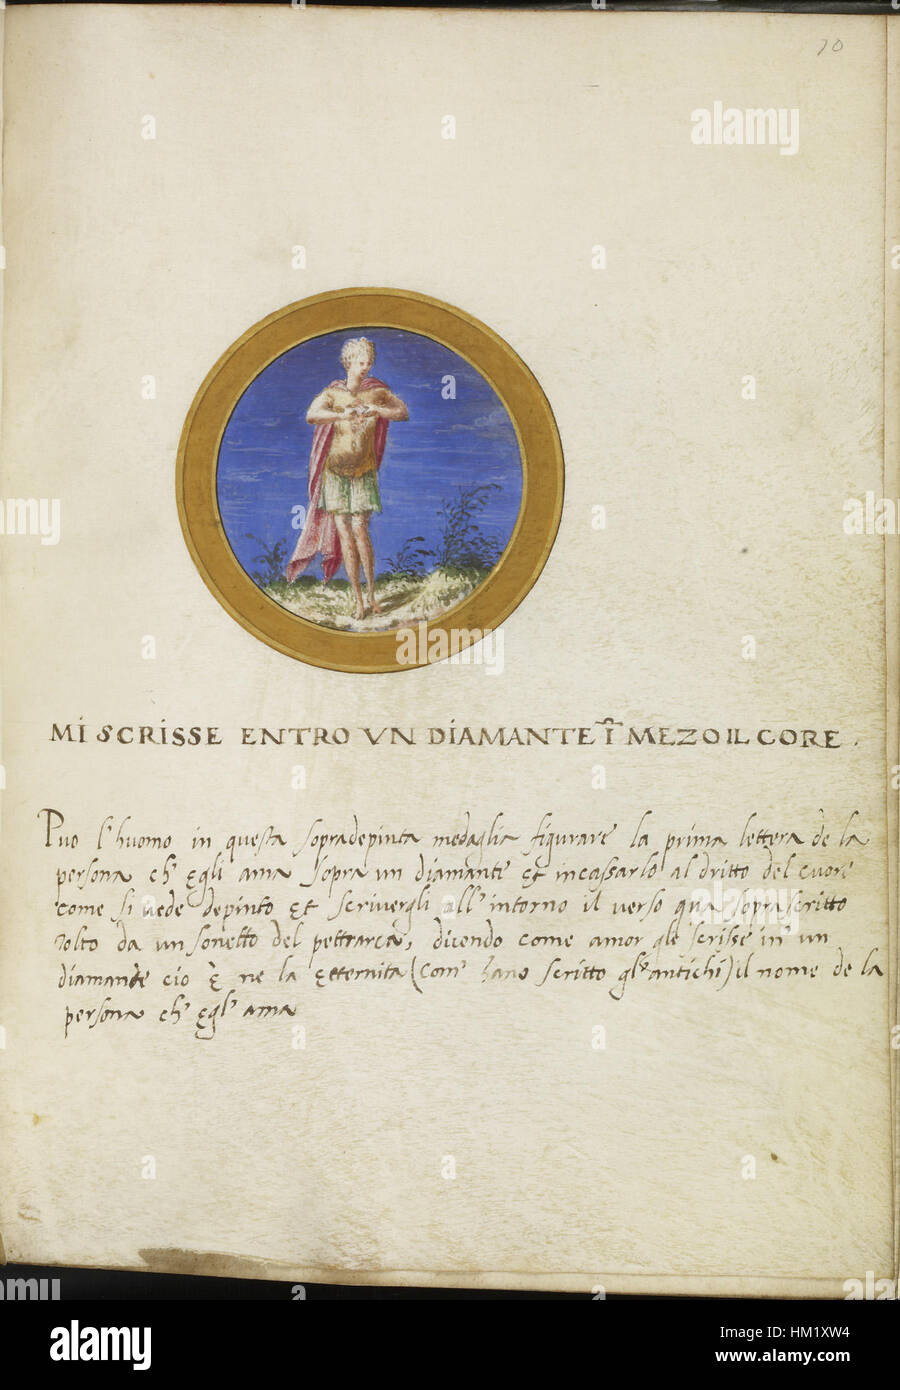 10
MI SCRISSE ENTRO VN DIAMANTE Ĩ MEZO IL CORE .
Puo l'huomo in questa sopradepinta medaglia figurare la prima lettera de la
persona ch' ęgli ama sopra un diamante ęt incassarlo al dritto del cuore
come si uede depinto ęt scriuergli all' intorno il verso qua soprascritto
tolto da un sonetto del pettrarca, dicendo come amor gle scrisse in un
diamante cio ę ne la ętternita (com' hano scritto gl' antichi) il nome de la
persona ch' ęgl' ama
alamy
Image ID: HM1XW4
www.alamy.com